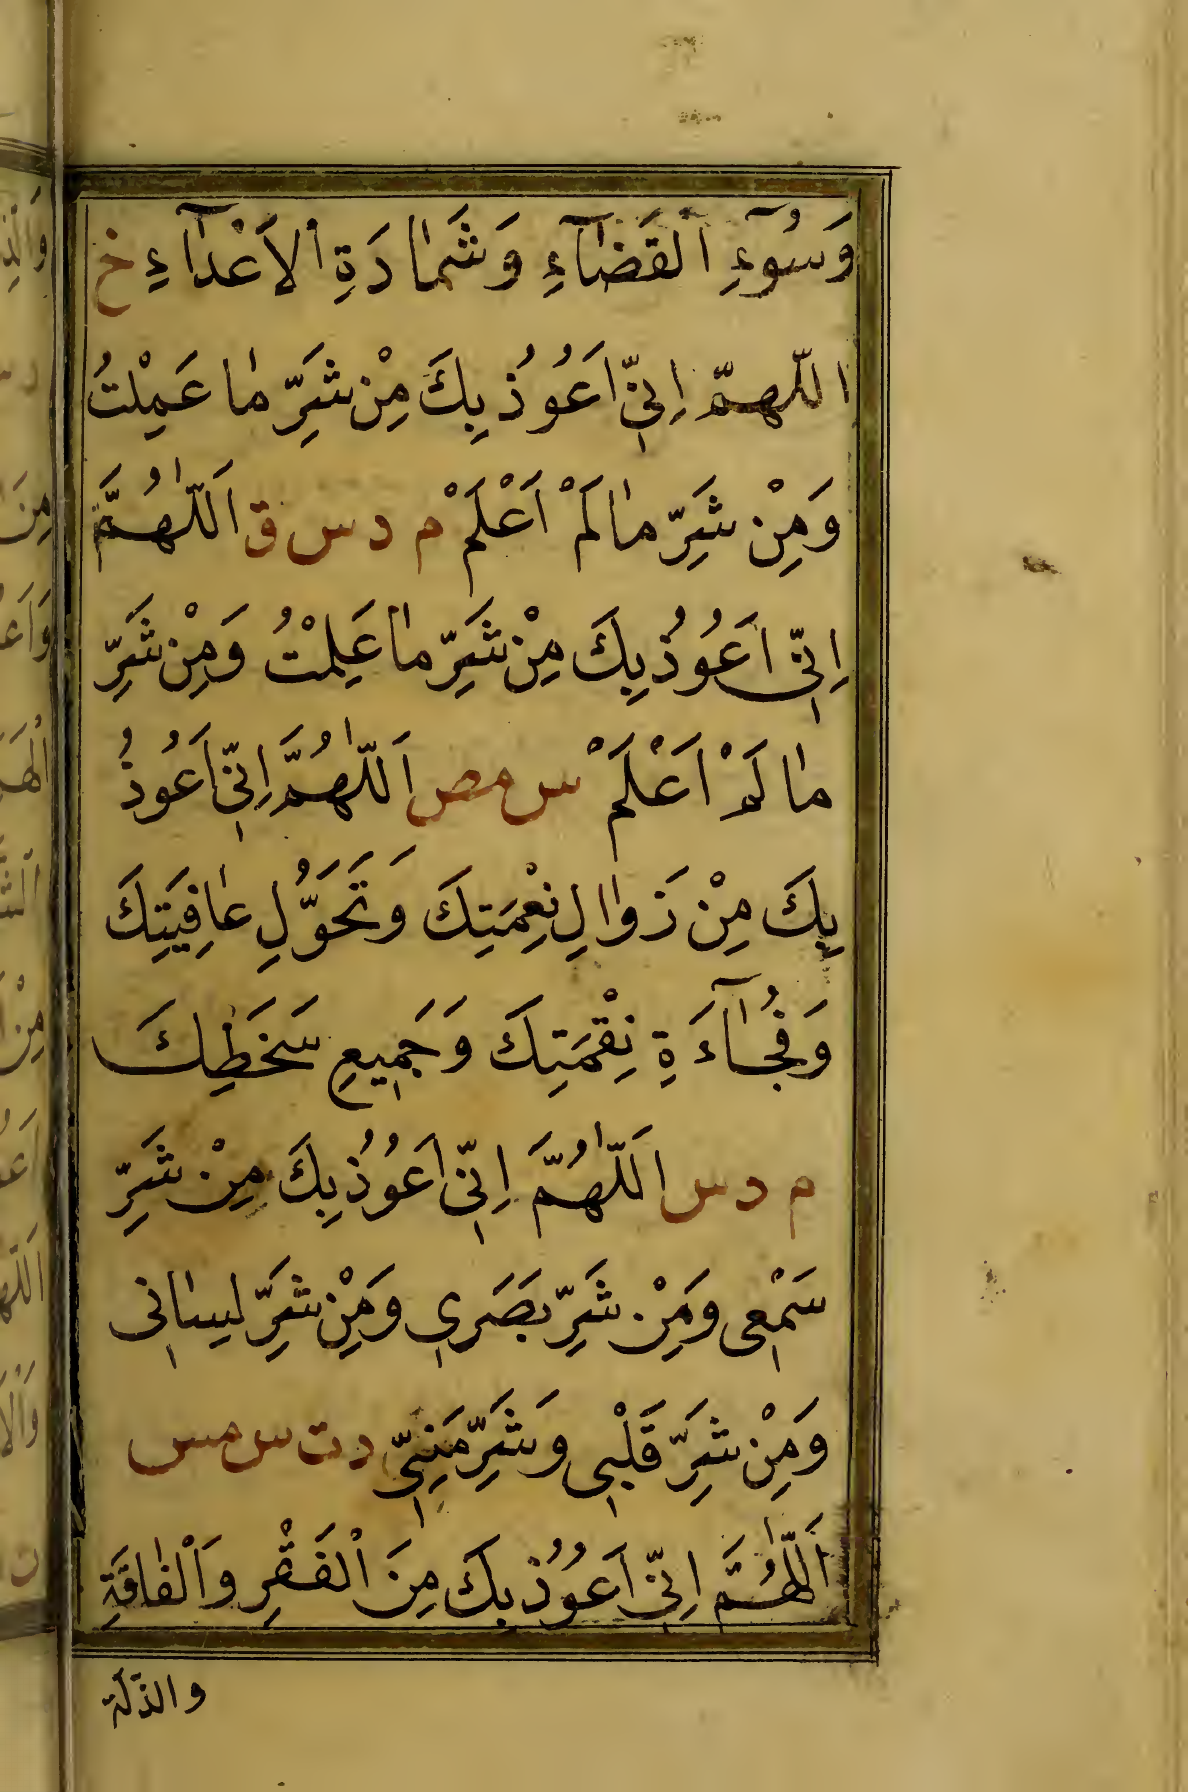 وَسُوٓءِ الْقَضَآءِ وَشَمَادَةِ الْاَعْدَآءِ خ
اللّٰهمّ اِنّيِ اَعُوُذُ بِكَ مِنْ شَرِّ مَا عَمِلْتُ
وَمِنْ شَرِّ مَا لَمْ اَعْلَمْ م د س ق اَللّٰهُمَّ
اِنّيِ اَعُوُذُ بِكَ مِنْ شَرِّ مَا عَلِمْتُ وَمِنْ شَرِّ
مَا لَمْ اَعْلَمْ س مص اَللّٰهُمَّ اِنّيِ اَعُوُذُ
بِكَ مِنْ زَوَالِ نِعْمَتِكَ وَتَحَوُّلِ عَافِيَتِكَ
وَفُجَآءَةِ نِقْمَتِكَ وَجَمِيعِ سَخَطِكَ
م د س اَللّٰهُمَّ اِنّيِ اَعُوُذُ بِكَ مِنْ شَرِّ
سَمْعىِ وَمِنْ شَرِّ بَصَرىِ وَمِنْ شَرِّ لِسَانىِ
وَمِنْ شَرِّ قَلْبىِ وَشَرِّ مَنِيّىِ د ت س مس
اَللّٰهُمَّ اِنّيِ اَعُوُذُ بِكَ مِنَ الْفَقْرِ وَالْفَاقَةِ
والذّلّة